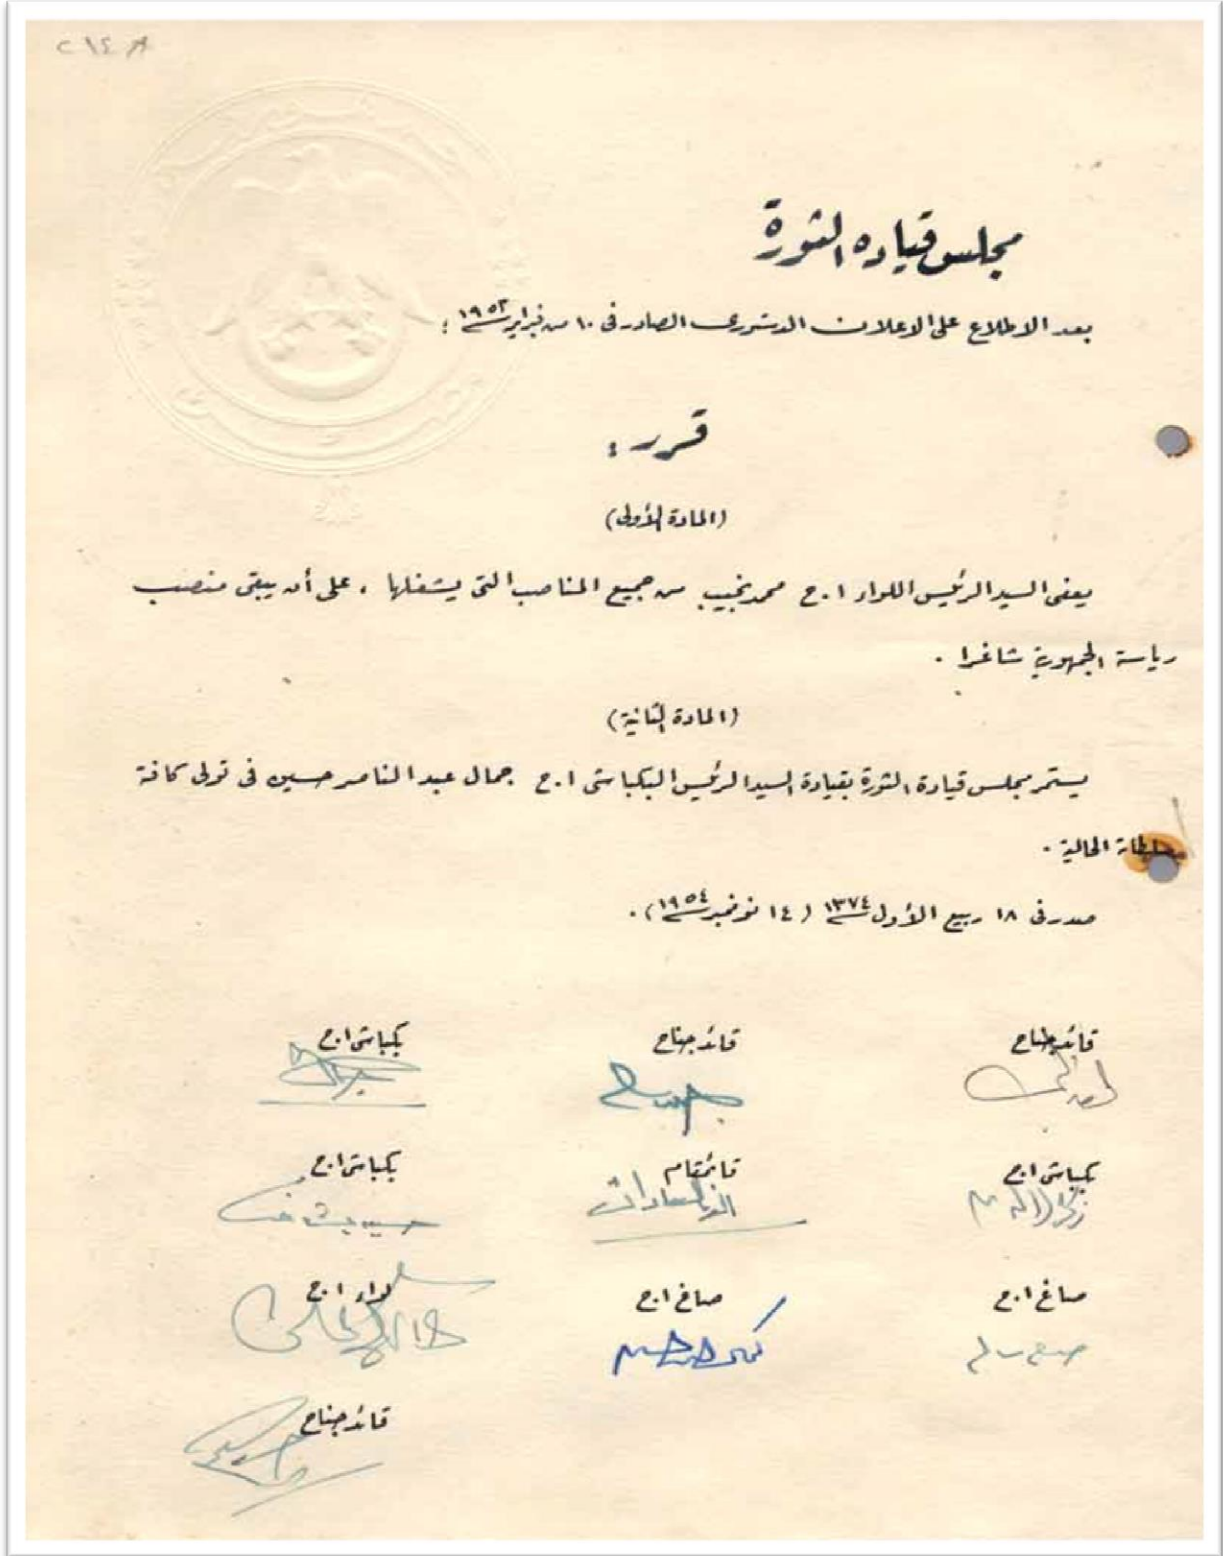 ٢١٤٨
مجلس قيادة الثورة
بعد الاطلاع على الاعلان الدستورى الصادر فى ١٠ من فبراير سنة ١٩٥٣ ؛
قرر :
(المادة الأولى)
يعفى السيد الرئيس اللواء ا.ح محمد نجيب من جميع المناصب التى يشغلها ، على أن يبقى منصب
رياسة الجمهورية شاغرا .
(المادة الثانية)
يستمر مجلس قيادة الثورة بقيادة السيد الرئيس البكباشى ا.ح جمال عبد الناصر حسين فى تولى كافة
سلطاته الحالية .
صدر فى ١٨ ربيع الأول سنة ١٣٧٤ (١٤ نوفمبر سنة ١٩٥٤) .
قائد جناح قائد جناح بكباشى ا.ح
بكباشى ا.ح قائمقام بكباشى ا.ح
زكريا انور السادات حسين الشافعى
صاغ ا.ح صاغ ا.ح لواء ا.ح
صلاح سالم كمال الدين حسين
قائد جناح